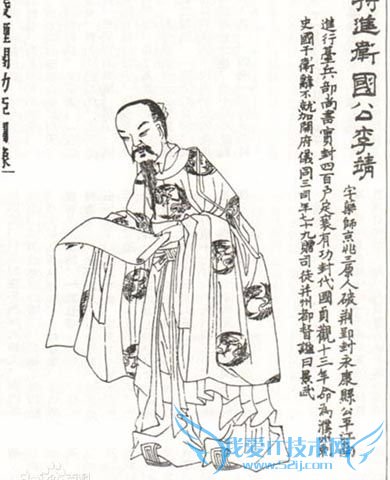 特進衛國公李靖
字藥師京兆三原人破荆郢封永康縣公平江南
進行臺兵部尚書實封四百戶定襄有功封代國貞觀十三年命為濮州
史國于衛辭不就加開府儀同三司年七十九贈司徒并州都督諡曰景武
凌煙閣功臣圖像
我爱IT技术网
www.52ij.com